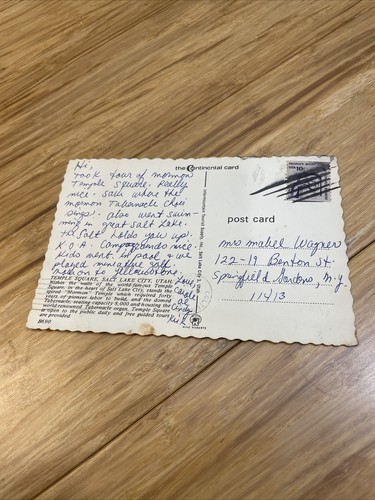 the continental card
post card
USA 10c
Hi,
Took tour of mormon
Temple Square. Really
nice. Saw where the
mormon Tabernacle Choir
sings. also went swim-
ming in great Salt Lake.
The Salt holds you up!
K.O.A. Campgrounds nice.
Kids went in pool & we
played miniature golf.
Now on to Yellowstone.
Love,
Carole
al
Cindy
TEMPLE SQUARE, SALT LAKE CITY, UTAH
Within the walls of the world-famous Temple
Square, in the heart of Salt Lake City, stands the
"Mormon" Temple which required forty
years of pioneer labor to build, and the domed
Tabernacle, seating capacity 8,000 and housing the
world renowned Tabernacle organ. Temple Square
is open to the public daily and free guided tours
are provided.
Mrs mabel Wagner
122-19 Benton St.
Springfield Gardens, n.y.
11413